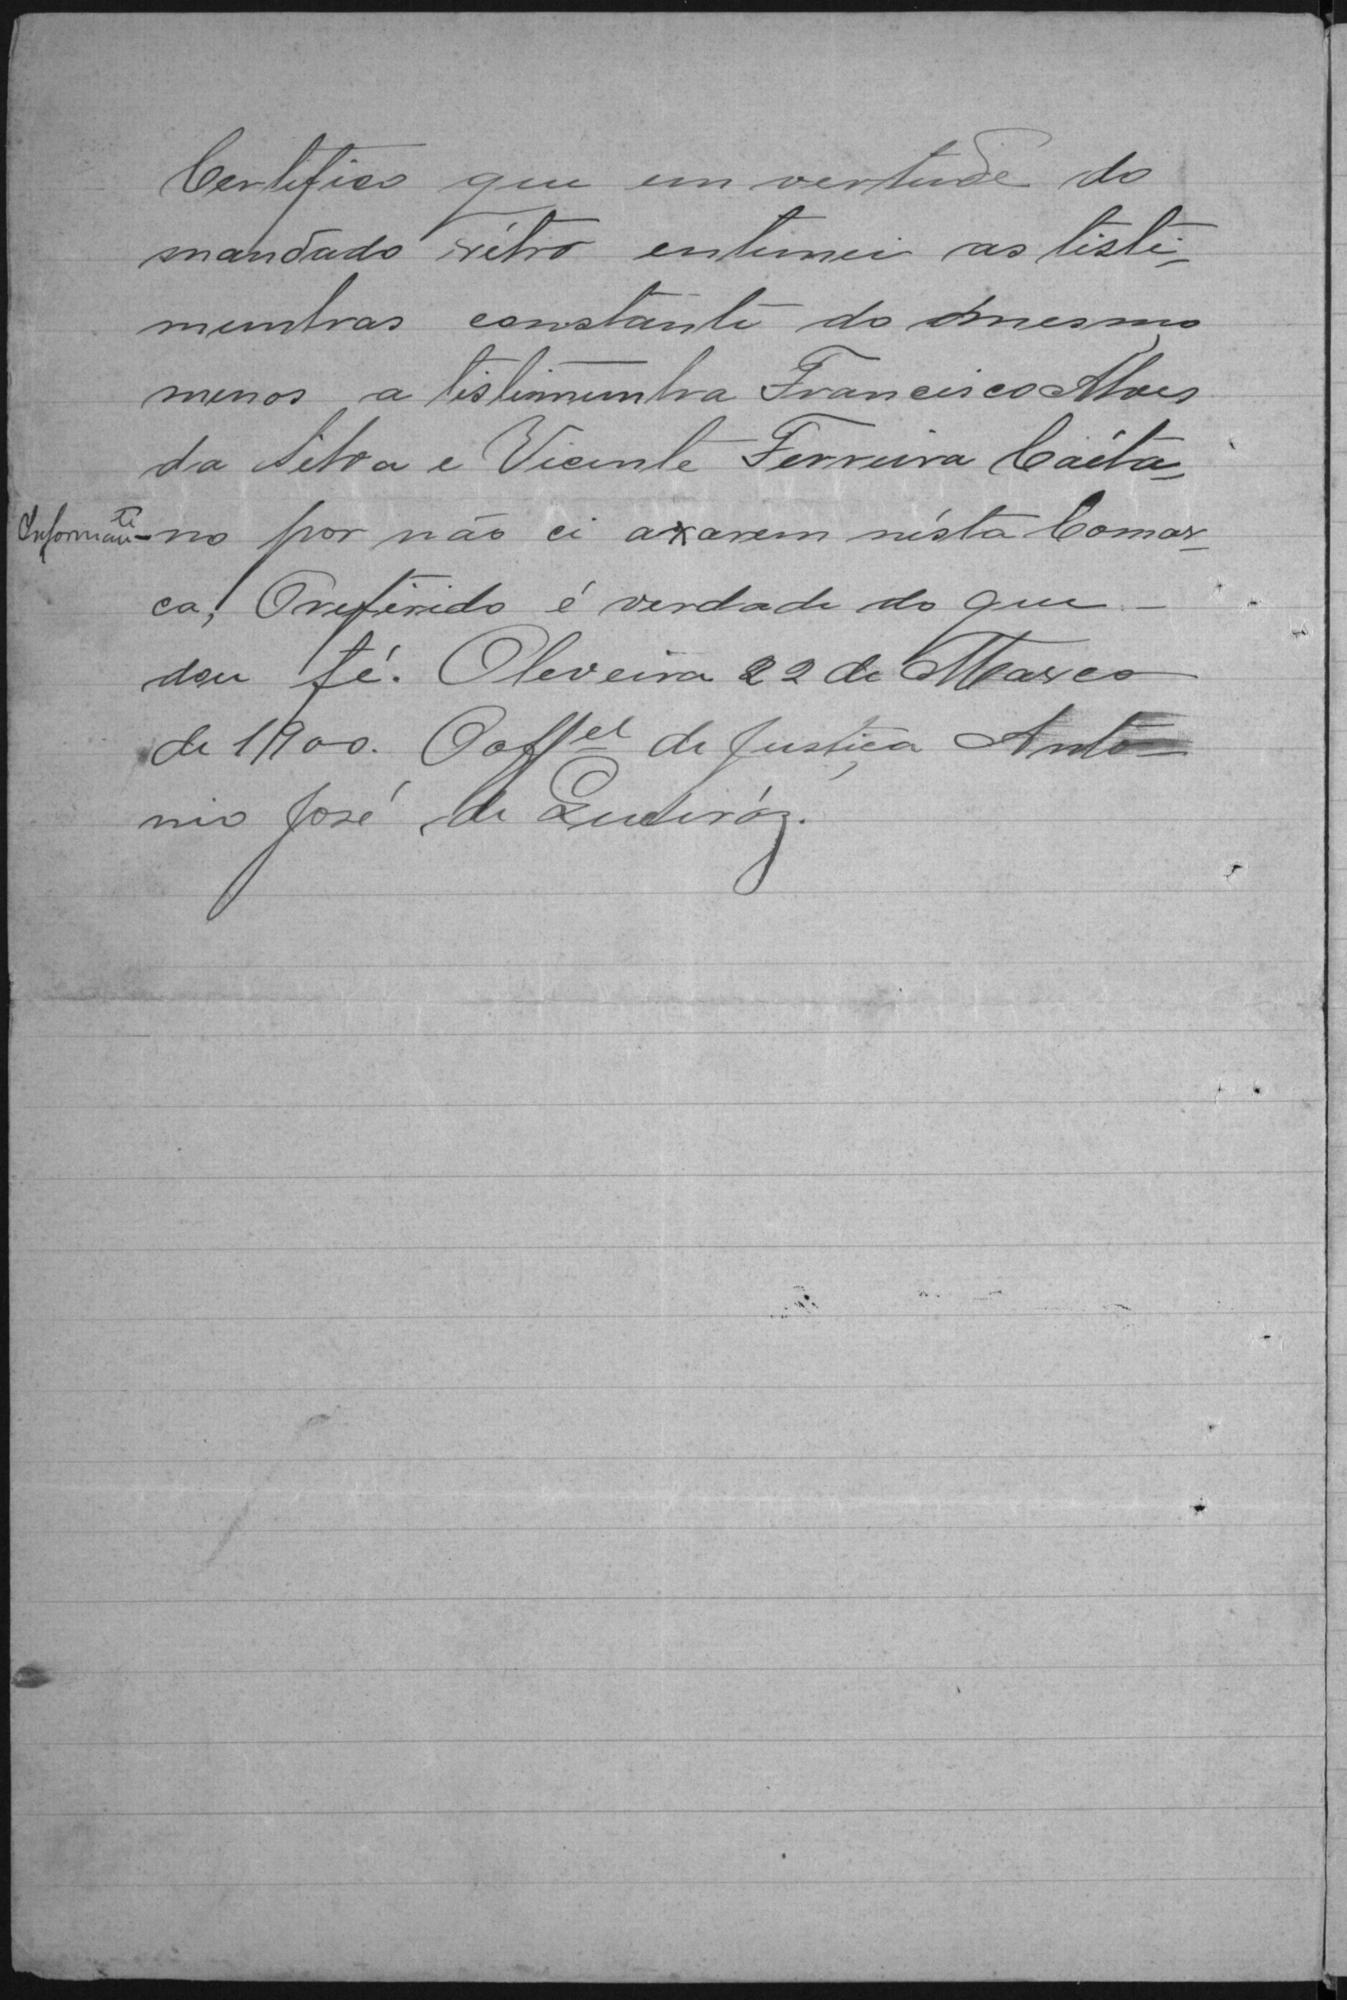 Certifico que em vertude do
mandado rétro entimei as testi-
munhas constante do mesmo
menos a testimunha Francisco Alves
da Silva e Vicente Ferreira Caéta-
no por não ci axarem nésta Comar-
ca, O referido é verdade do que
dou fé. Oleveira 22 de Março
de 1900. O off.el de Justiça Anto-
nio José de Queiróz.